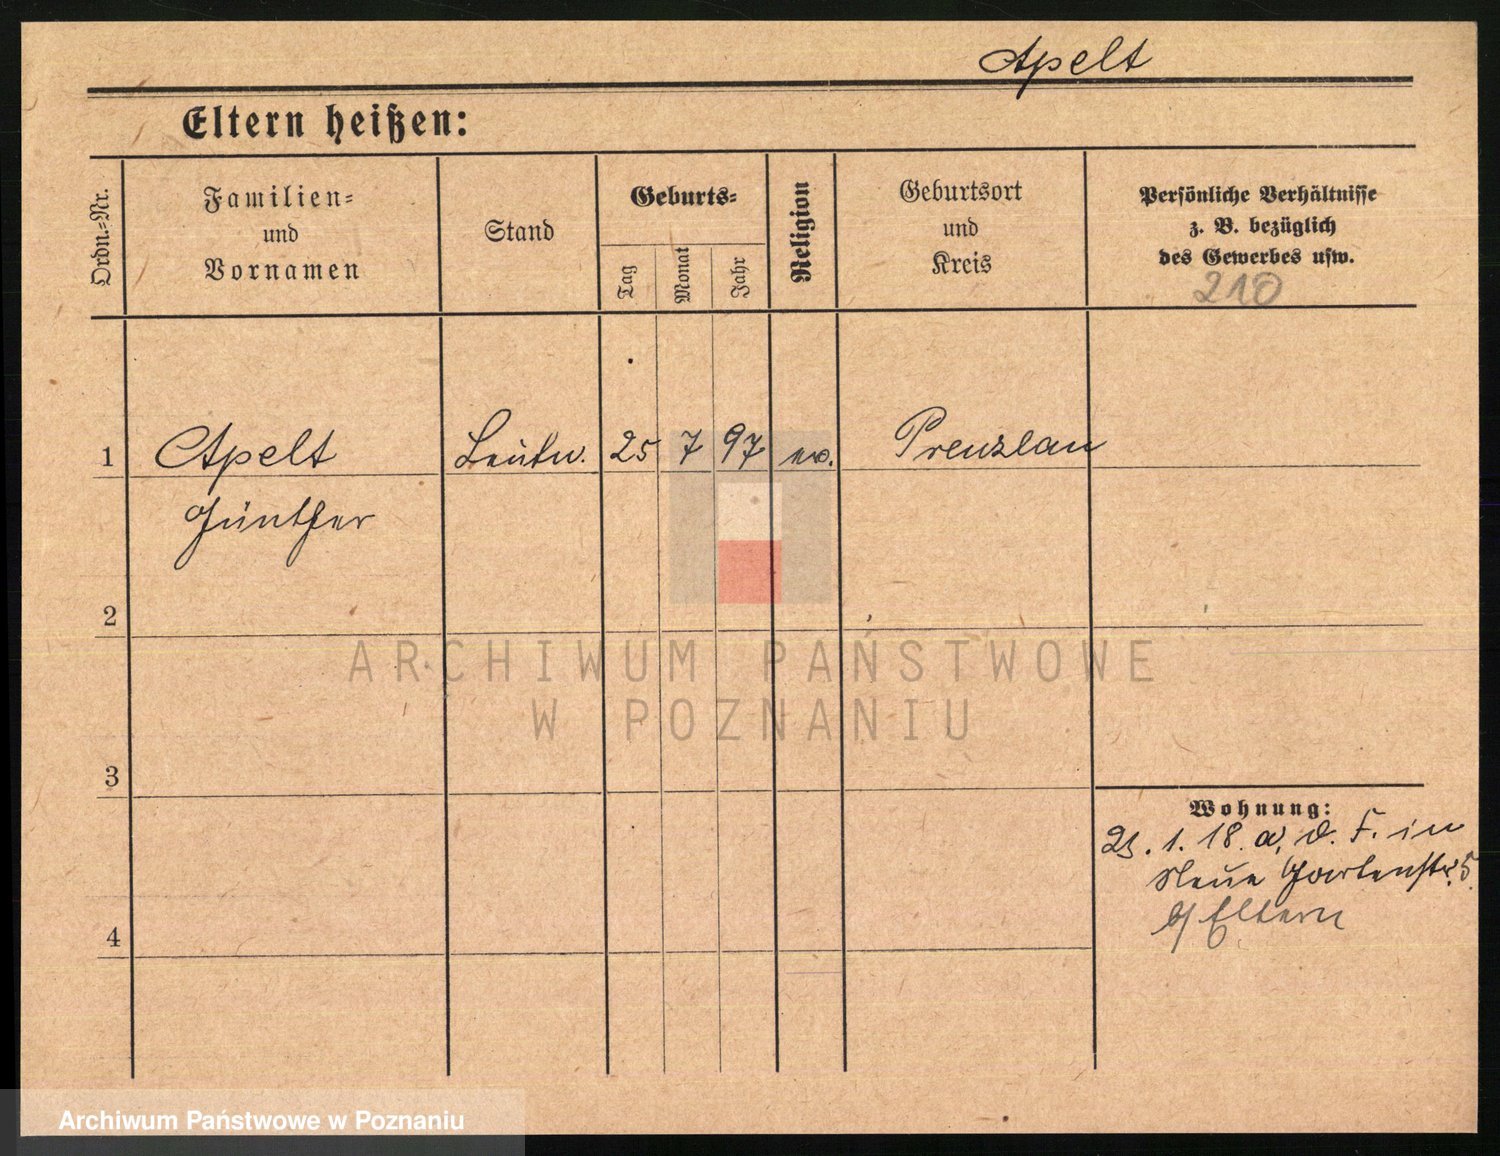 Apelt
Eltern heißen:
Ordn.=Nr.
Familien=
und
Vornamen
Stand
Geburts=
Tag
Monat
Jahr
Religion
Geburtsort
und
Kreis
Persönliche Verhältnisse
z. B. bezüglich
des Gewerbes usw.
210
1 Apelt Leutn. 25 7 97 ev. Prenzlau
Günther
2
ARCHIWUM PAŃSTWOWE
W POZNANIU
3
Wohnung:
1. 18. a. d. F. in
Neue Gartenstr. 5
b/ Eltern
4
Archiwum Państwowe w Poznaniu